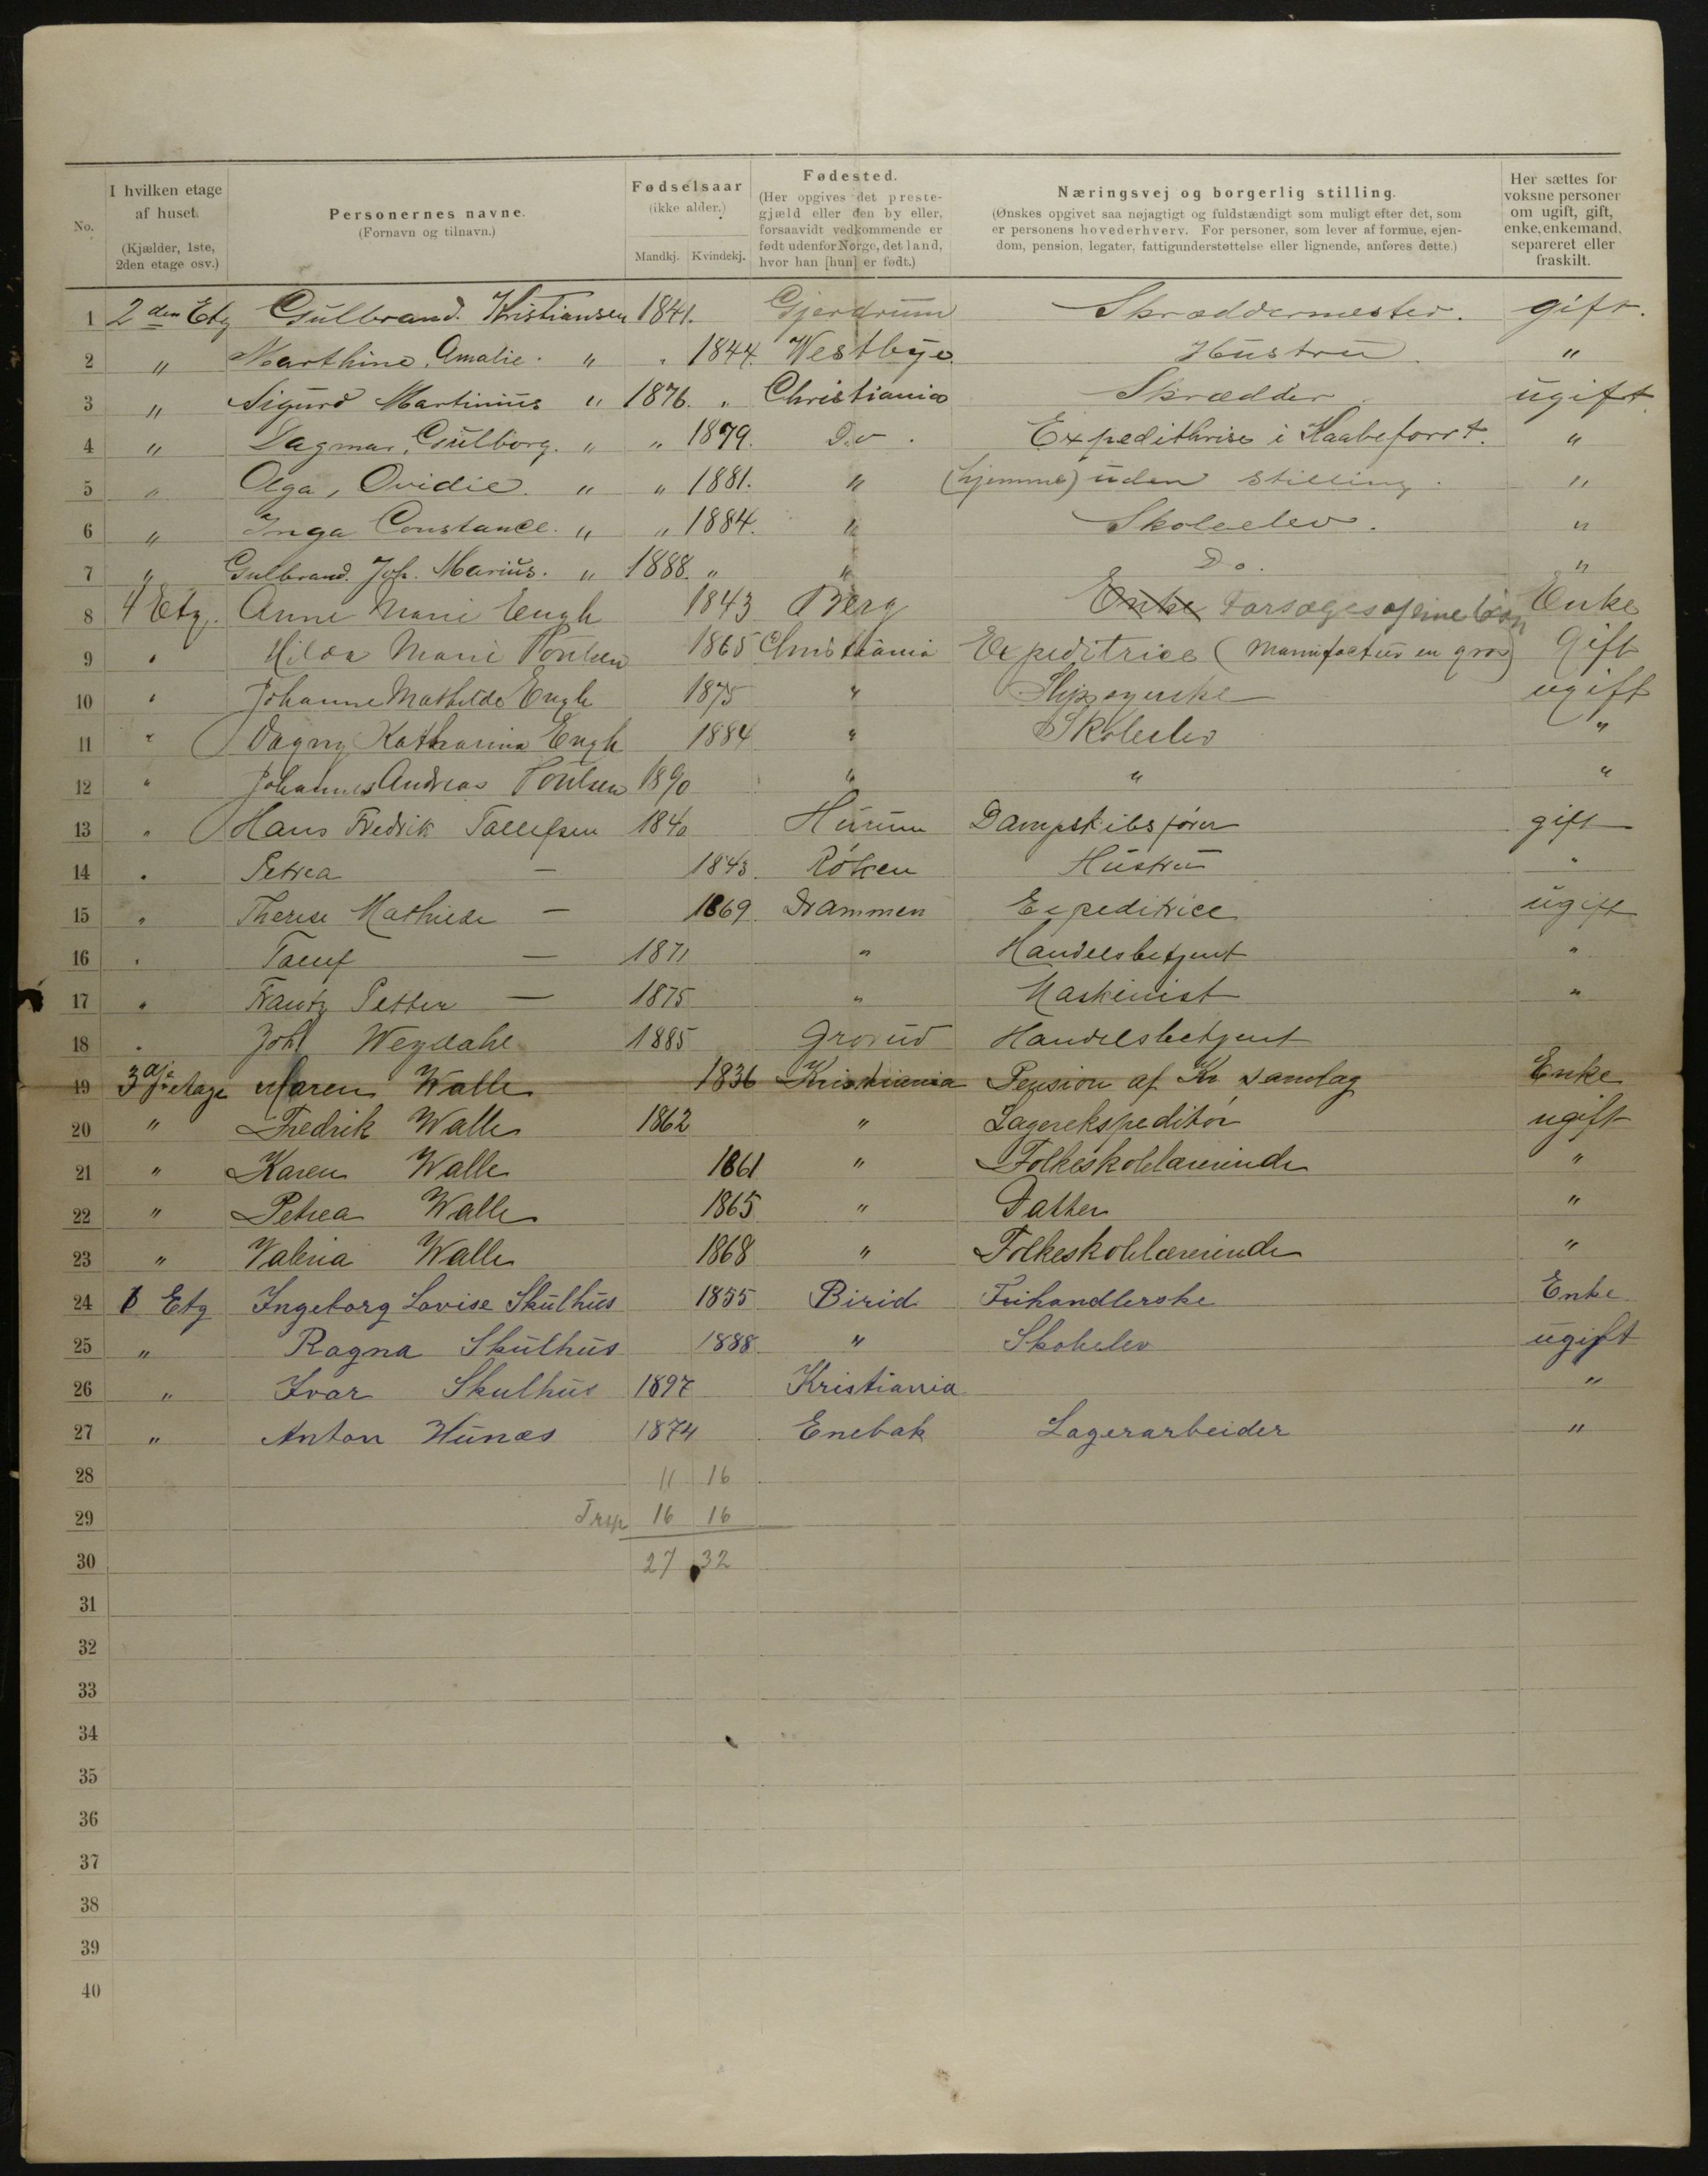 No. I hvilken etage af huset. (Kjælder, 1ste, 2den etage osv.) Personernes navne. (Fornavn og tilnavn.) Fødselsaar (ikke alder.) Mandkj. Kvindekj. Fødested. (Her opgives det prestegjæld eller den by eller, forsaavidt vedkommende er født udenfor Norge, det land, hvor han [hun] er født.) Næringsvej og borgerlig stilling. (Ønskes opgivet saa nøjagtigt og fuldstændigt som muligt efter det, som er personens hovederhverv. For personer, som lever af formue, ejendom, pension, legater, fattigunderstøttelse eller lignende, anføres dette.) Her sættes for voksne personer om ugift, gift, enke, enkemand, separeret eller fraskilt.
1 2den Etg Gulbrand. Kristiansen 1841. Gjerdrum Skræddermester. gift.
2 " Marthine, Amalie. " " 1844. Westbye. Hustru. "
3 " Sigurd Martinius " 1876. " Christiania Skrædder. ugift.
4 " Dagmar, Gulborg. " " 1879. Do. Expedithrise i Kaabeforrt. "
5 " Olga, Ovidie. " " 1881. " (hjemme) uden stilling. "
6 " Inga Constance. " " 1884. " Skoleelev. "
7 " Gulbrand. Joh. Marius. " 1888. " " Do. "
8 4 Etg. Anne Marie Engh 1843 Berg Enke Forsørges af sine børn Enke
9 " Hilda Marie Poulsen 1865 Christiania Expeditrice (Manufactur en gros) Gift
10 " Johanne Mathilde Engh 1875 " Slipssyerske ugift
11 " Dagny Katharina Engh 1884 " Skoleelev "
12 " Johannes Andreas Poulsen 1890 " " "
13 " Hans Fredrik Tollefsen 1840 Hurum Dampskibsfører gift
14 " Petrea — 1843 Røken Hustru "
15 " Therese Mathilde — 1869 Drammen Expeditrice ugift
16 " Tollef — 1871 " Handelsbetjent "
17 " Frantz Petter — 1875 " Maskinist "
18 " Johl Weydahl 1885 Grorud Handelsbetjent
19 3dje etage Maren Walle 1836 Kristiania Pension af Kr. samlag Enke
20 " Fredrik Walle 1862 " Lagerekspeditør ugift
21 " Karen Walle 1861 " Folkeskolelærerinde "
22 " Petrea Walle 1865 " Datter "
23 " Valeria Walle 1868 " Folkeskolelærerinde "
24 1 Etg Ingeborg Lovise Skulhus 1855 Birid Frihandlerske Enke
25 " Ragna Skulhus 1888. " Skoleelev ugift
26 " Ivar Skulhus 1897 Kristiania "
27 " Anton Hunæs 1874 Enebak Lagerarbeider "
28 11 16
29 Trsp 16 16
30 27 32
31
32
33
34
35
36
37
38
39
40